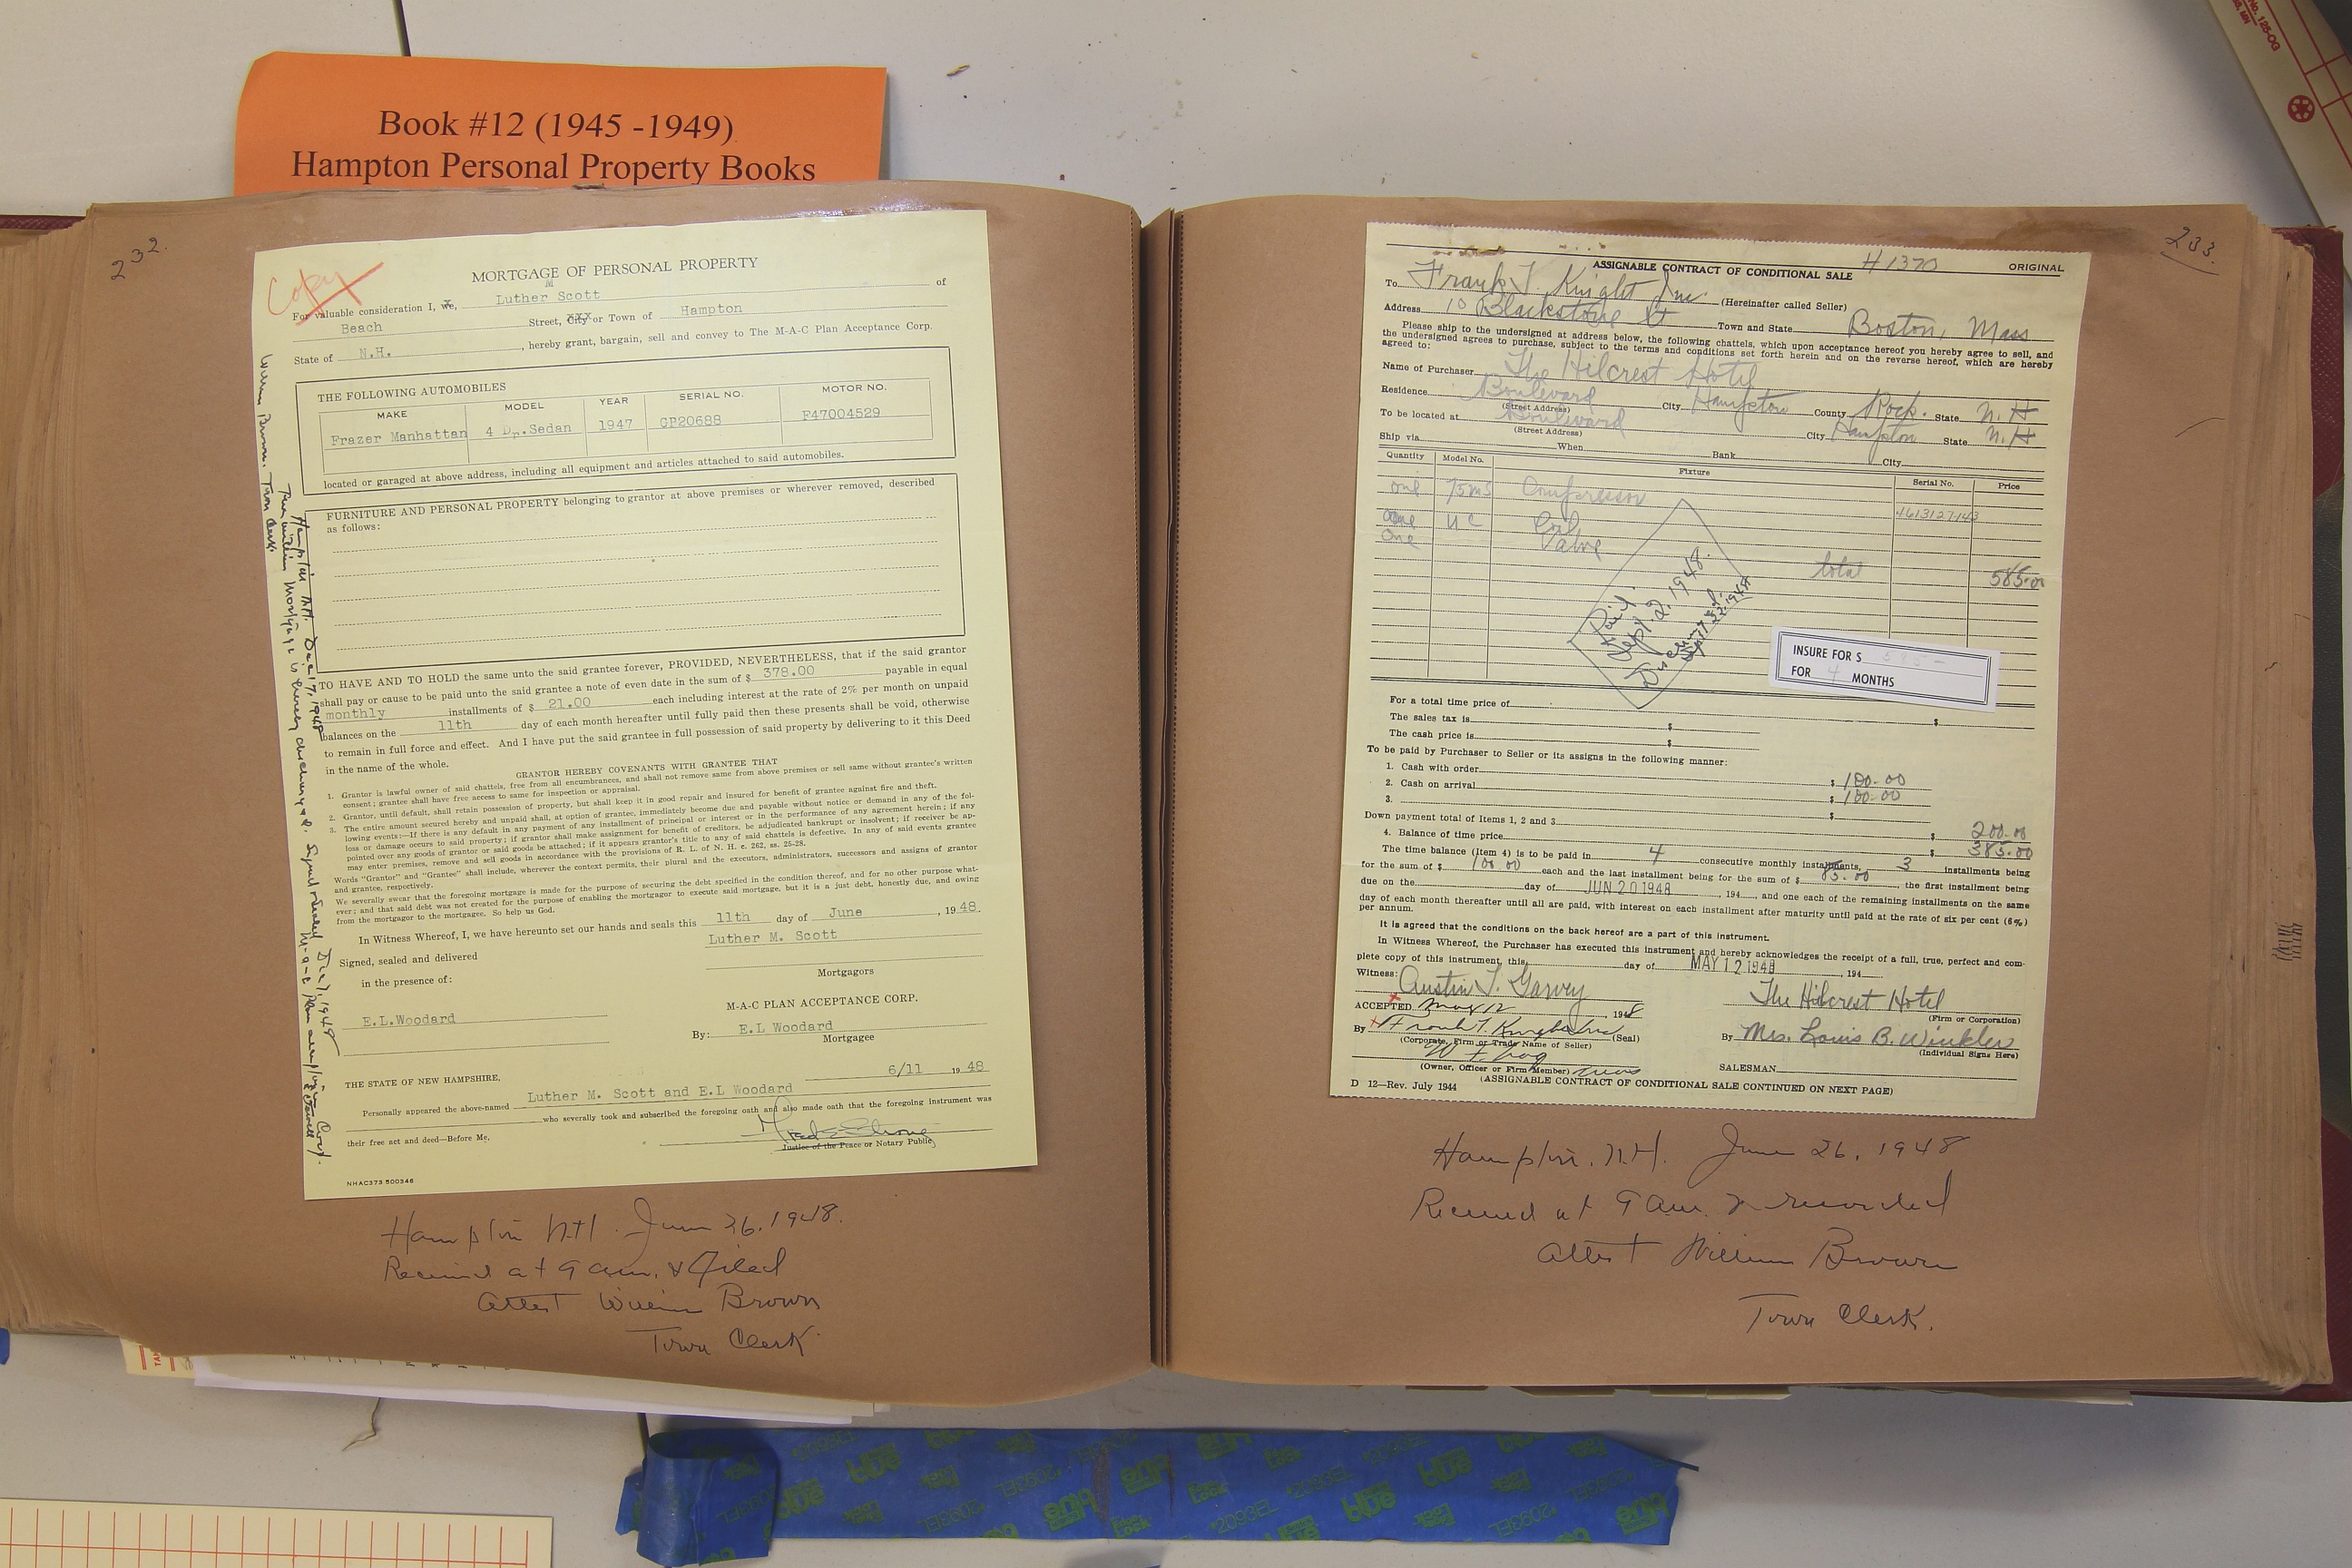 Book #12 (1945 -1949)
Hampton Personal Property Books
232.
Copy
MORTGAGE OF PERSONAL PROPERTY
For valuable consideration I, we, Luther M Scott of
Beach Street, City or Town of Hampton
State of N.H., hereby grant, bargain, sell and convey to The M-A-C Plan Acceptance Corp.
THE FOLLOWING AUTOMOBILES
MAKE MODEL YEAR SERIAL NO. MOTOR NO.
Frazer Manhattan 4 Dr. Sedan 1947 GP20688 F47004529
located or garaged at above address, including all equipment and articles attached to said automobiles.
FURNITURE AND PERSONAL PROPERTY belonging to grantor at above premises or wherever removed, described
as follows:
TO HAVE AND TO HOLD the same unto the said grantee forever, PROVIDED, NEVERTHELESS, that if the said grantor
shall pay or cause to be paid unto the said grantee a note of even date in the sum of $ 378.00 payable in equal
monthly installments of $ 21.00 each including interest at the rate of 2% per month on unpaid
balances on the 11th day of each month hereafter until fully paid then these presents shall be void, otherwise
to remain in full force and effect. And I have put the said grantee in full possession of said property by delivering to it this Deed
in the name of the whole.
GRANTOR HEREBY COVENANTS WITH GRANTEE THAT
1. Grantor is lawful owner of said chattels, free from all encumbrances, and shall not remove same from above premises or sell same without grantee's written
consent; grantee shall have free access to same for inspection or appraisal.
2. Grantor, until default, shall retain possession of property, but shall keep it in good repair and insured for benefit of grantee against fire and theft.
3. The entire amount secured hereby and unpaid shall, at option of grantee, immediately become due and payable without notice or demand in any of the fol-
lowing events:—If there is any default in any payment of any installment of principal or interest or in the performance of any agreement herein; if any
loss or damage occurs to said property; if grantor shall make assignment for benefit of creditors, be adjudicated bankrupt or insolvent; if receiver be ap-
pointed over any goods of grantor or said goods be attached; if it appears grantor's title to any of said chattels is defective. In any of said events grantee
may enter premises, remove and sell goods in accordance with the provisions of R. L. of N. H. c. 262, ss. 25-28.
Words "Grantor" and "Grantee" shall include, wherever the context permits, their plural and the executors, administrators, successors and assigns of grantor
and grantee, respectively.
We severally swear that the foregoing mortgage is made for the purpose of securing the debt specified in the condition thereof, and for no other purpose what-
ever; and that said debt was not created for the purpose of enabling the mortgagor to execute said mortgage, but it is a just debt, honestly due, and owing
from the mortgagor to the mortgagee. So help us God.
In Witness Whereof, I, we have hereunto set our hands and seals this 11th day of June, 19 48.
Luther M. Scott
Signed, sealed and delivered
Mortgagors
in the presence of:
M-A-C PLAN ACCEPTANCE CORP.
E.L.Woodard
By: E.L Woodard
Mortgagee
THE STATE OF NEW HAMPSHIRE, 6/11 19 48
Personally appeared the above-named Luther M. Scott and E.L Woodard
who severally took and subscribed the foregoing oath and also made oath that the foregoing instrument was
their free act and deed—Before Me,
Justice of the Peace or Notary Public
NHAC373 500346
Hampton N.H. Dec 17, 1948
The within mortgage is hereby discharged. Signed & sealed Dec 7, 1948
M-A-C Plan Acceptance Corp.
William Brown. Town Clerk
Hampton N.H. June 26, 1948.
Received at 9 a.m. & Filed
Attest William Brown
Town Clerk.
233.
H 1370
ORIGINAL
ASSIGNABLE CONTRACT OF CONDITIONAL SALE
To Frank T. Knight Inc. (Hereinafter called Seller)
Address 10 Blackstone St Town and State Boston, Mass
Please ship to the undersigned at address below, the following chattels, which upon acceptance hereof you hereby agree to sell, and
the undersigned agrees to purchase, subject to the terms and conditions set forth herein and on the reverse hereof, which are hereby
agreed to:
Name of Purchaser The Hilcrest Hotel
Residence Boulevard City Hampton County Rock. State N.H
(Street Address)
To be located at Boulevard City Hampton State N.H
(Street Address)
Ship via When Bank City
Quantity Model No. Fixture Serial No. Price
one 75MS Compressor 1613127143
one UC Coil
One Valve
total 585.00
Paid.
Sept. 2, 1948.
Discharged.
Sept 22, 1948
INSURE FOR $ 585-
FOR 4 MONTHS
For a total time price of $
The sales tax is $
The cash price is $
To be paid by Purchaser to Seller or its assigns in the following manner:
1. Cash with order $ 100.00
2. Cash on arrival $ 100.00
3. $
Down payment total of Items 1, 2 and 3 200.00
4. Balance of time price $ 385.00
The time balance (Item 4) is to be paid in 4 consecutive monthly installments, 3 installments being
for the sum of $ 100.00 each and the last installment being for the sum of $ 85.00, the first installment being
due on the day of JUN 20 1948, 194, and one each of the remaining installments on the same
day of each month thereafter until all are paid, with interest on each installment after maturity until paid at the rate of six per cent (6%)
per annum.
It is agreed that the conditions on the back hereof are a part of this instrument.
In Witness Whereof, the Purchaser has executed this instrument and hereby acknowledges the receipt of a full, true, perfect and com-
plete copy of this instrument, this day of MAY 12 1948, 194
Witness: Austin T. Garvey The Hilcrest Hotel
(Firm or Corporation)
ACCEPTED May 12, 1948
By Frank T. Knight Inc (Seal) By Mrs. Louis B. Winkler
(Corporate, Firm or Trade Name of Seller) (Individual Signs Here)
(Owner, Officer or Firm Member) SALESMAN
D 12—Rev. July 1944 (ASSIGNABLE CONTRACT OF CONDITIONAL SALE CONTINUED ON NEXT PAGE)
Hampton, N.H. June 26, 1948
Received at 9 a.m. & recorded
Attest William Brown
Town Clerk.